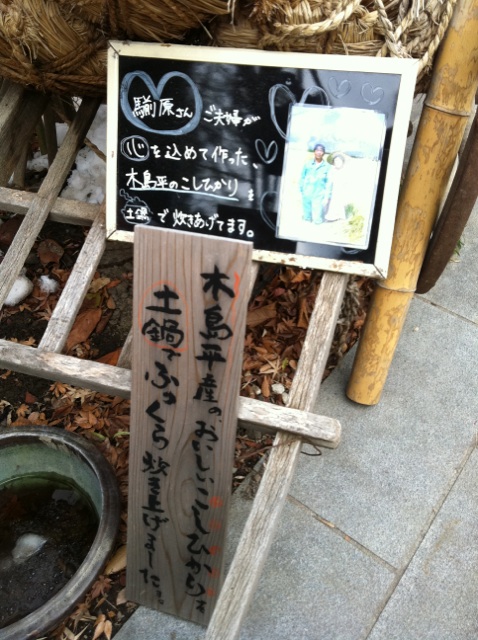 原さん ご夫婦が
心を込めて作った、
木島平のこしひかりを
土鍋で炊きあげてます。
木島平産の、おいしいこしひかりを
土鍋でふっくら炊き上げました。